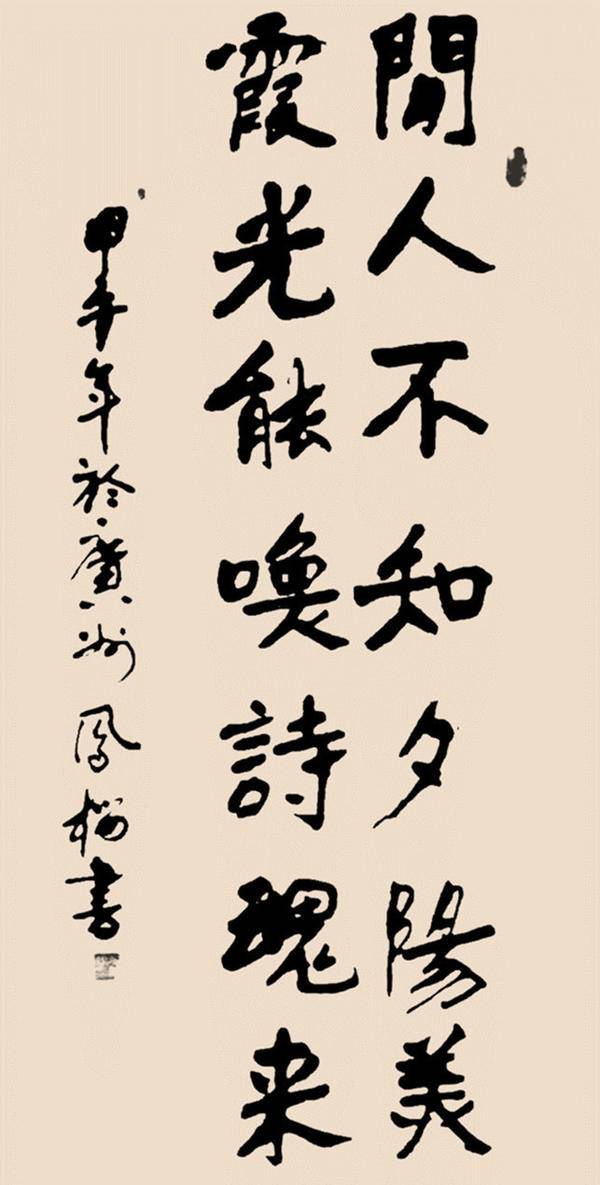 閒人不知夕陽美
霞光能喚詩魂来
甲午年於廣州鳳楊書